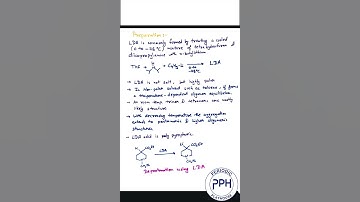 Preparation :-
LDA is commonly formed by treating a cooled
(0 to -78 °C) mixture of tetrahydrofuran &
diisopropylamine with n-butyllithium.
THF + + C4H9-Li → LDA
0 to
-78°C
→ LDA is not salt, but highly polar
→ In Non-polar solvent such as toluene, it forms
a temperature-dependent oligomer equilibrium.
→ At room temp. trimers & tetramers are mostly
likely structure
→ With decreasing temperature the aggregation
extends to pentameric & higher oligomeric
structures.
→ LDA solid is
H CO2Et
LDA
CO2Et
Deprotonation using LDA
PERIODIC
PPH